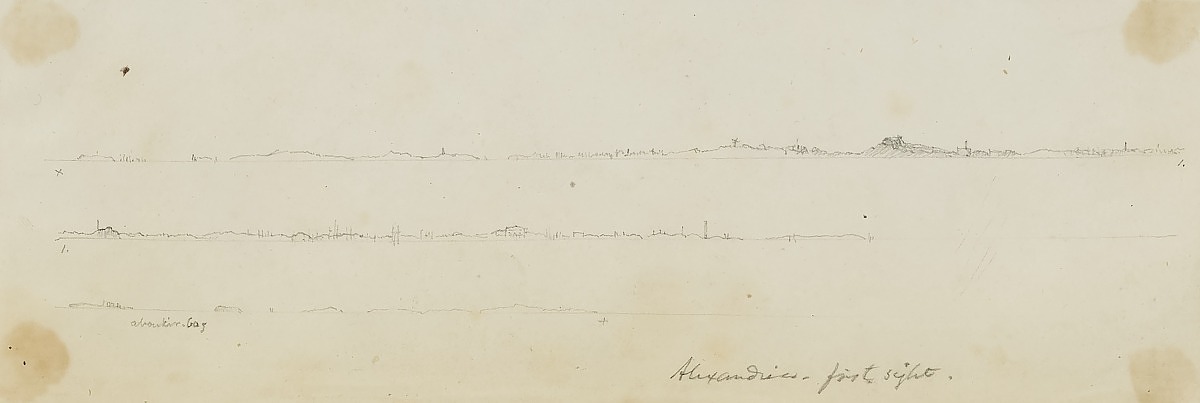 x
1.
1.
aboukir. bay
+
Alexandria - first sight.